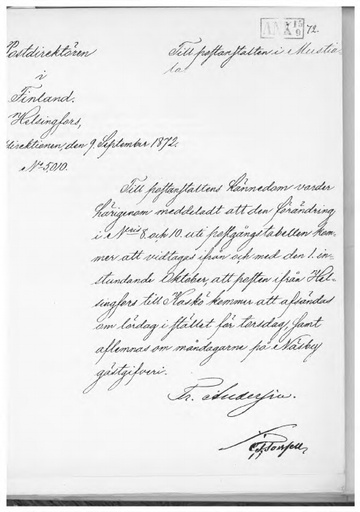 ANK XV 15/9 72.
Postdirektören
i
Finland.
Helsingfors,
direktionen, den 9. September 1872.
No 5,010.
Till postanstalten i Mustia-
la.
Till postanstaltens kännedom varder
härigenom meddeladt att den förändring
i Nris 8. och 10. uti postgångstabellen kom-
mer att vidtagas ifrån och med den 1. in-
stundande Oktober, att posten ifrån Hel-
singfors till Kaskö kommer att afsändas
om lördag i stället för torsdag, samt
aflemnas om måndagarne på Näsby
gästgifveri.
Fr.